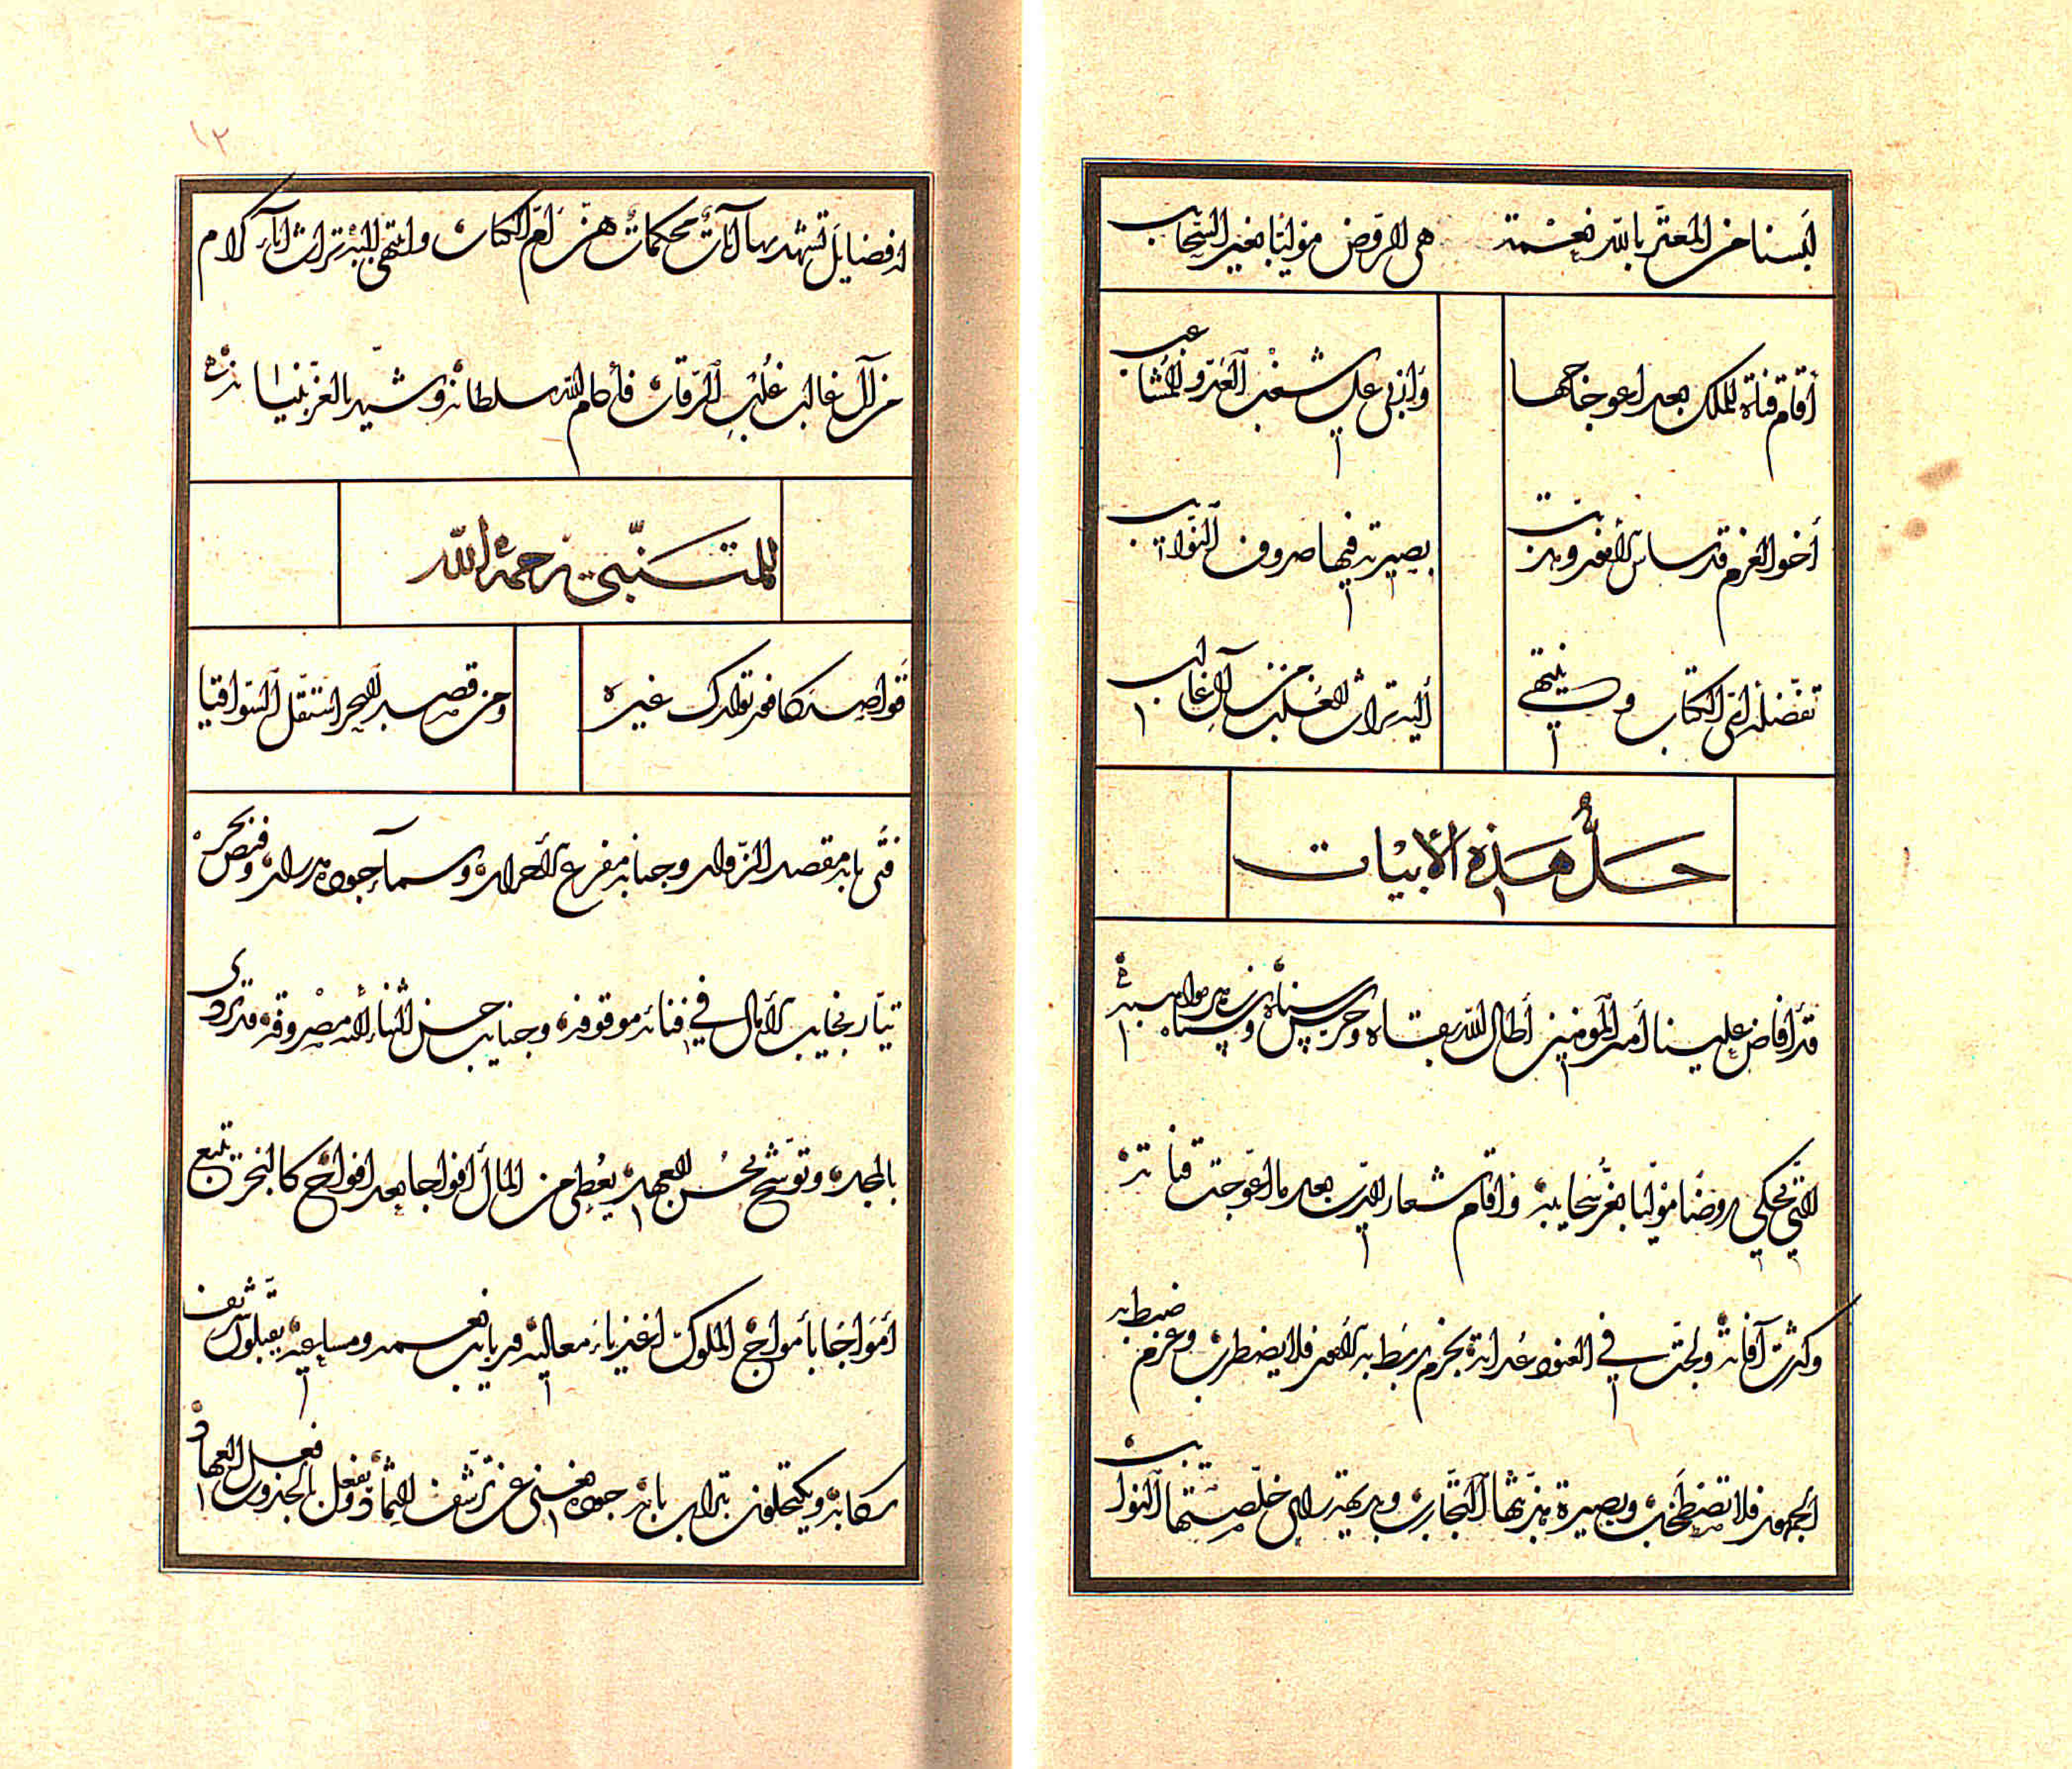 لبسنا من المعتز بالله نعمة هي الروض موليا بغير السحايب
أقام قناة الملك بعد اعوجاجها وأربى على شغب العدو المشاغب
أخو العزم قد ساس الأمور وهذبت بصيرته فيها صروف النوائب
تفضله آي الكتاب وينتهي إليه تراث الغلب من آل غالب
حل هذه الأبيات
قد أفاض علينا أمير المؤمنين أطال الله بقاه وحرس سناه وسناءه من مواهبه
التي تحكي روضا موليا بغر سحايبه وأقام شعار الدين بعد ما اعوجت قناته
وكثرت آفاته ولجت في العنود عداته بحزم ربط به الأمور فلا يضطرب وعزم ضبط به
الجمهور فلا تضطخب وبصيرة هذبتها التجارب وبديهة رأي خلصتها النوايب
له فضايل تشهد بها آيات محكمات هن أم الكتاب وانتهى إليه تراث آباء كرام
من آل غالب غلب الرقاب فأدام الله سلطانه وشيد بالعز بنيانه
للمتنبي رحمه الله
قواصد كافور توارك غيره ومن قصد البحر استقل السواقيا
فتى بابه مقصد الزوار وجنابه مفزع الأحرار وسماء جوده مدرار وفيض بحره
تيار نجايب الآمال في فنائه موقوفة وجنايب حسن الثناء إليه مصروفة قد تردى
بالمجد وتوشح بحسن العهد يعطي من المال أفواجا بعد أفواج كالبحر يتبع
أمواجا بأمواج الملوك أغنياء معاليه وربايب نعمه ومساعيه يقبلون شريف
ركابه ويكتحلون بتراب بابه جوده يغني عن ترشف الثماد وفعل الجدول فعل العهاد
١٢